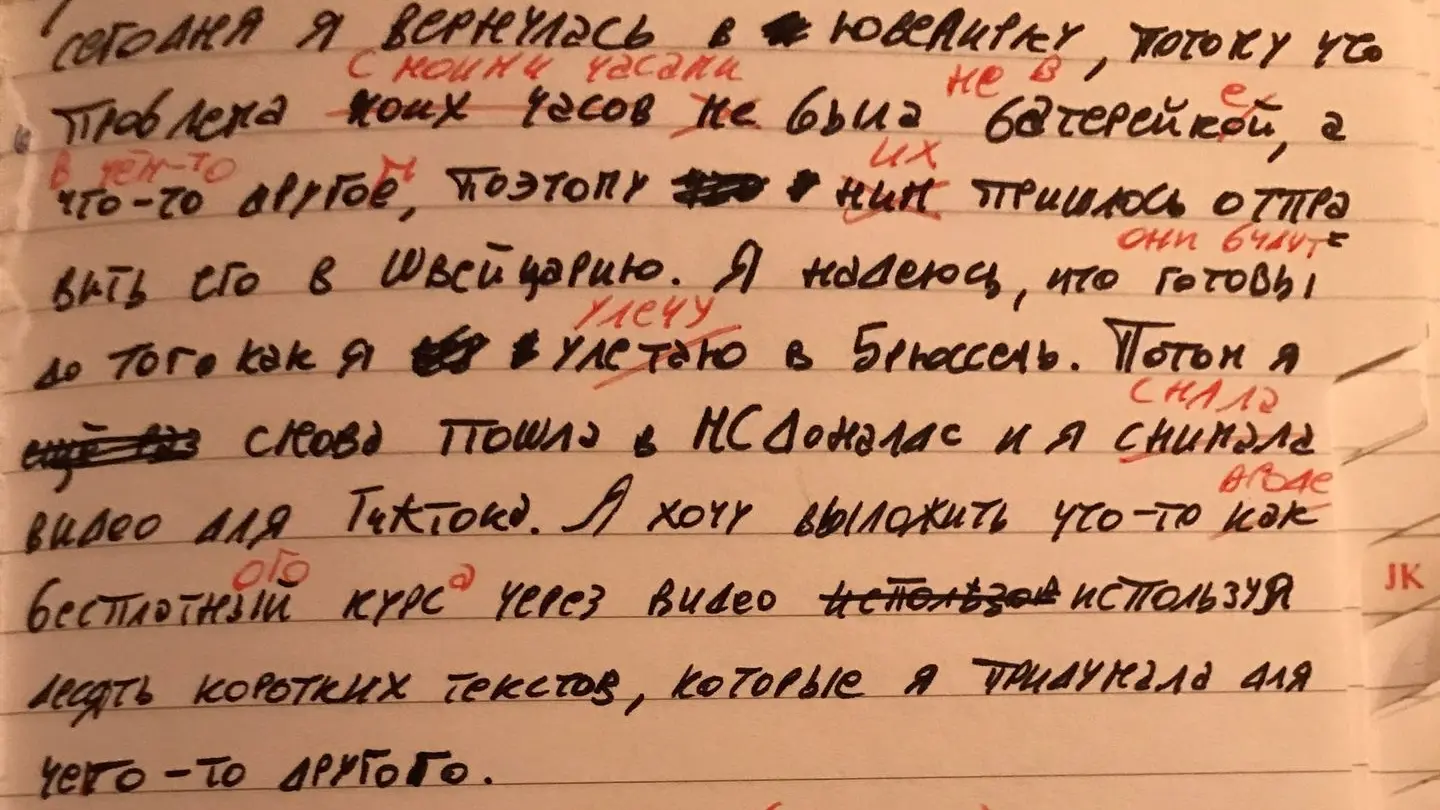 сегодня я вернулась в ювелирку, потому что
с моими часами не в е
проблема моих часов не была батерейкой, а
в чём-то м их
что-то другое, поэтому ним пришлось отпра
они будут
вить его в Швейцарию. Я надеюсь, что готовы
улечу
до того как я улетаю в Брюссель. Потом я
сняла
ещё раз снова пошла в МСДоналдс и я снимала
вроде
видео для Тиктока. Я хочу выложить что-то как
ого а
бесплатный курс через видео использов используя
десять коротких текстов, которые я придумала для
чего-то другого.
JK